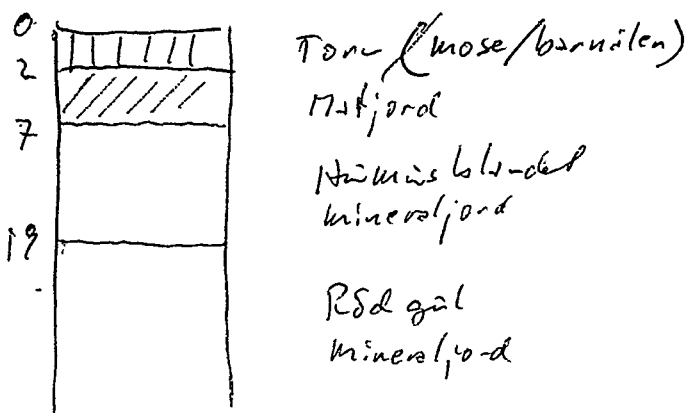 0
Torv (mose/barrnålen)
2
Matjord
7
Humusblandat
mineraljord
19
Röd gul
mineraljord